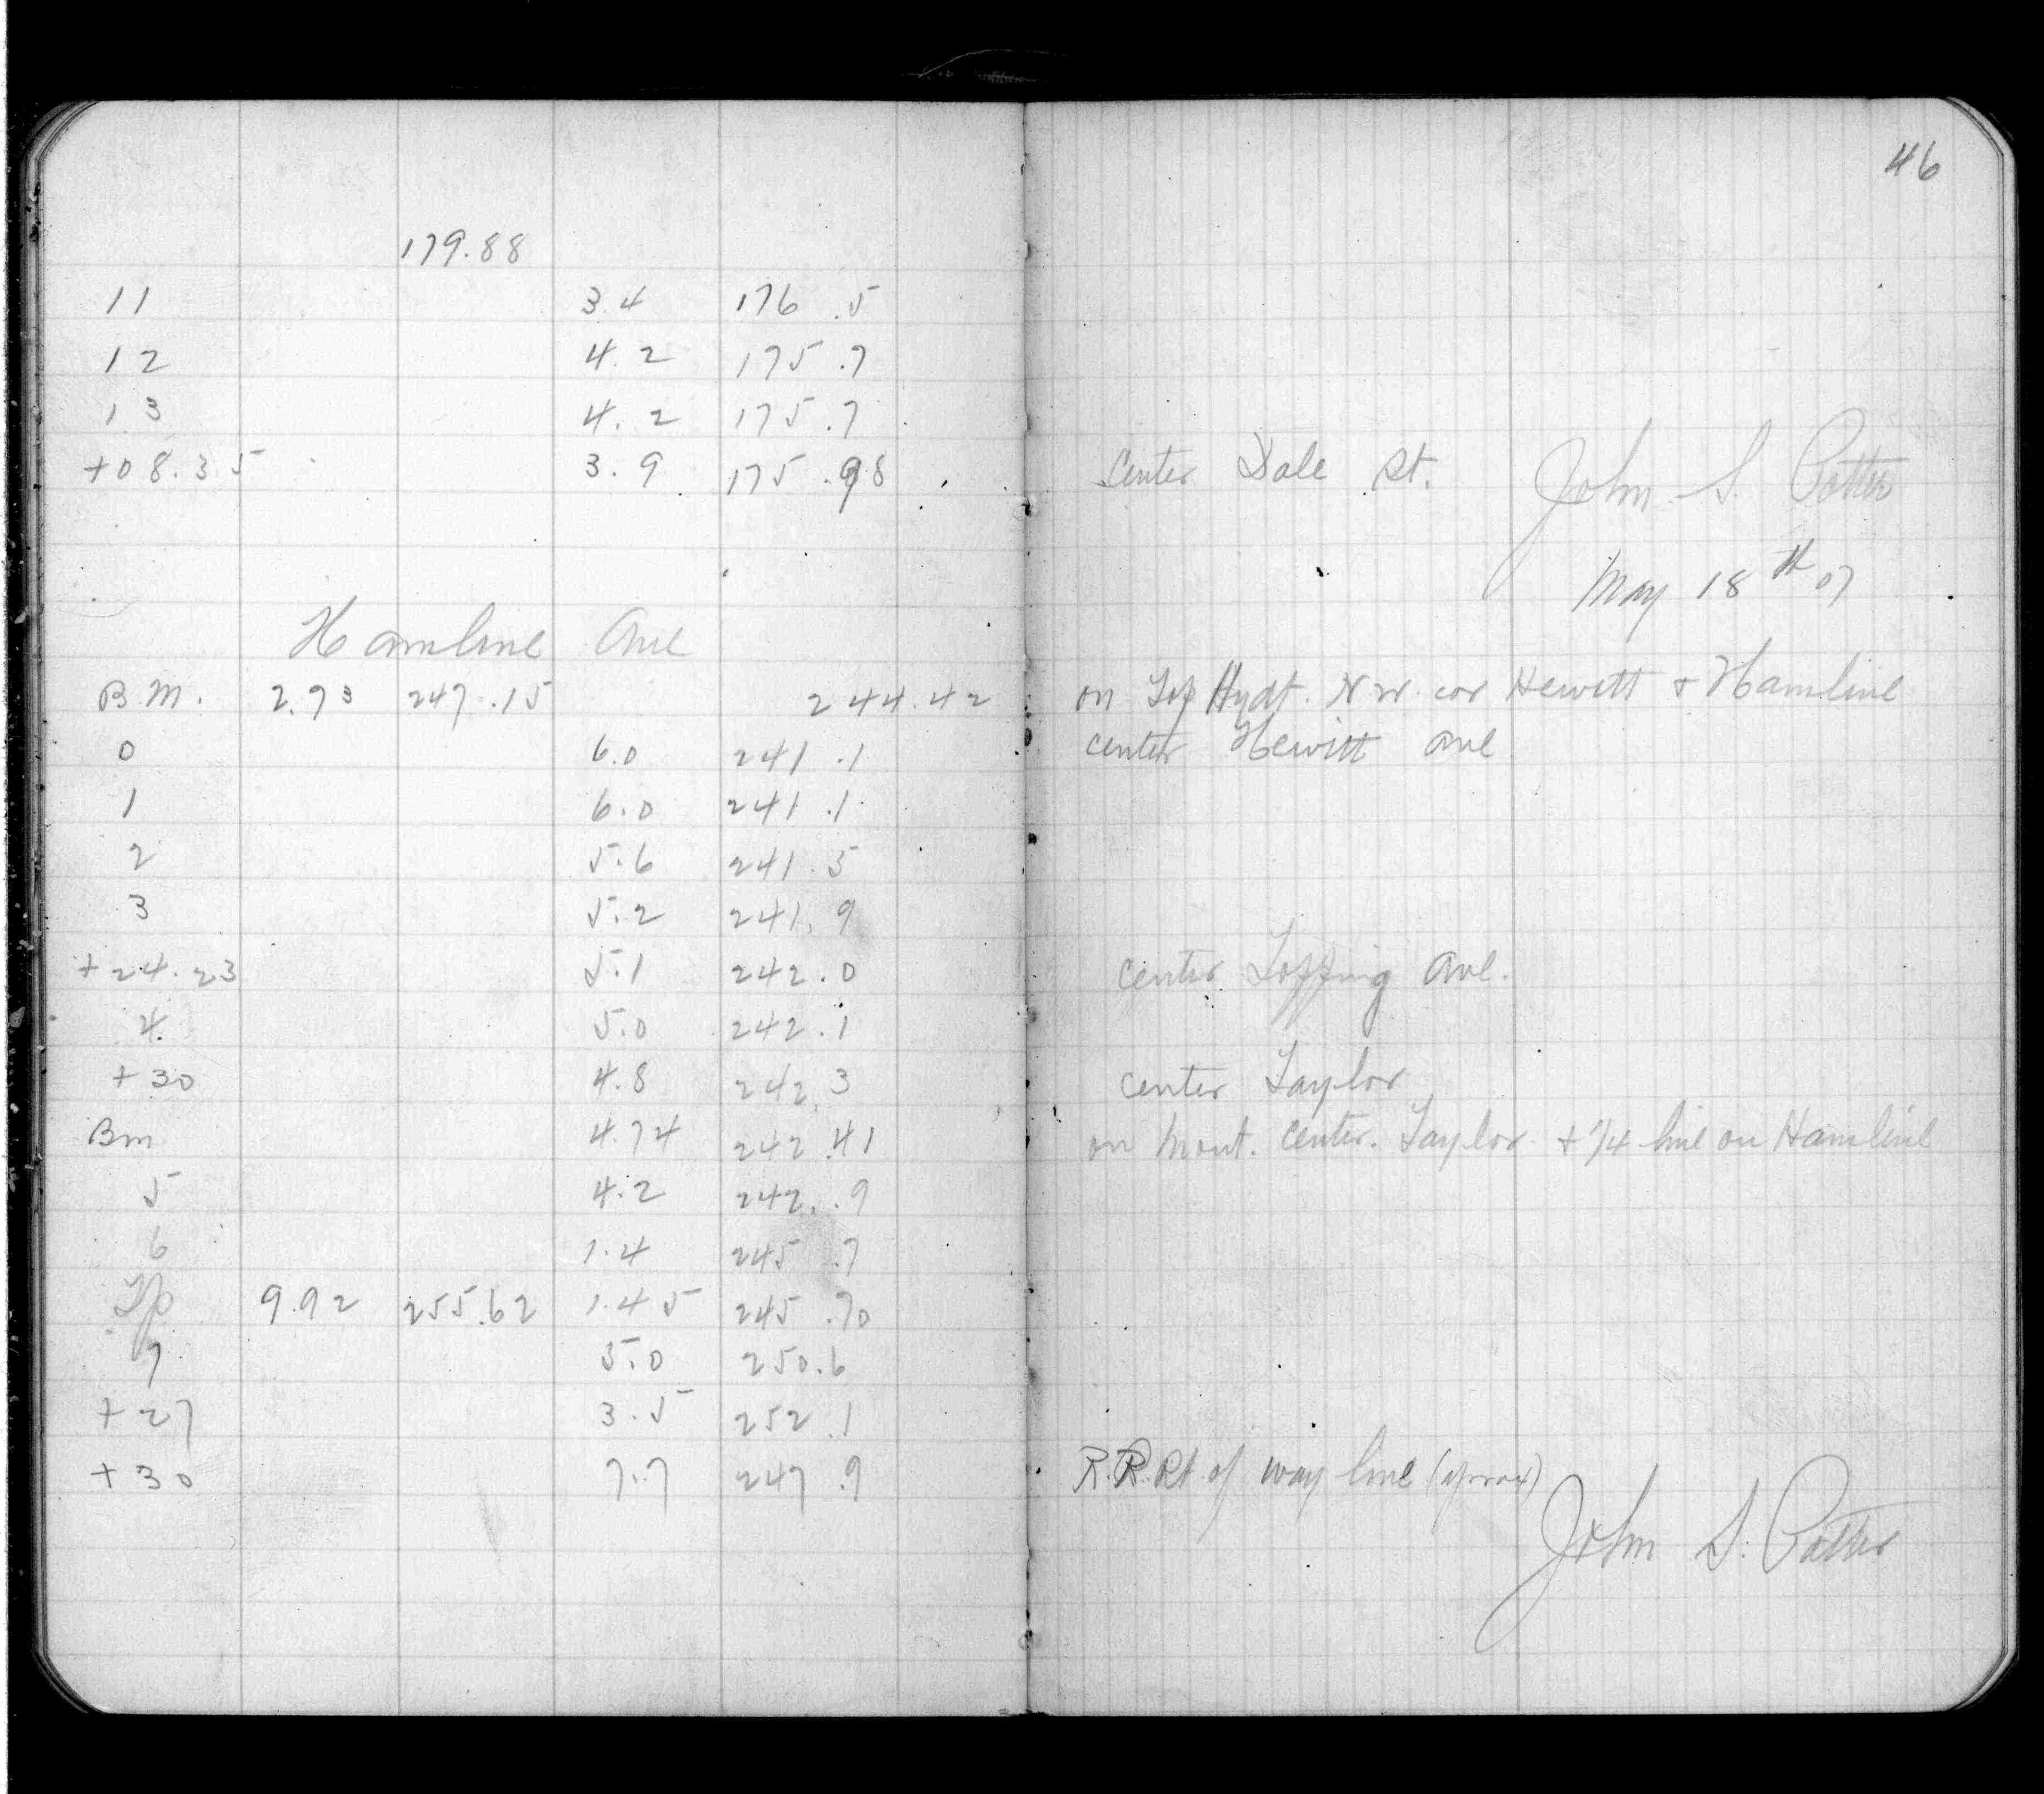 46
179.88
11 3.4 176.5
12 4.2 175.7
13 4.2 175.7
+08.35 3.9 175.98 Center Dale St. John S. Potter
May 18th 07
Hamline Ave
B.M. 2.73 247.15 244.42 on Top Hydt. N W. cor Hewitt + Hamline
0 6.0 241.1 center Hewitt Ave
1 6.0 241.1
2 5.6 241.5
3 5.2 241.9
+24.23 5.1 242.0 center Topping Ave.
4 5.0 242.1
+30 4.8 242.3 center Taylor
Bm 4.74 242.41 on Mont. Center. Taylor + 1/4 line on Hamline
5 4.2 242.9
6 1.4 245.7
Tp 9.92 255.62 1.45 245.70
7 5.0 250.6
+27 3.5 252.1
+30 7.7 247.9 R.R. Rt of way line (aprox)
John S. Potter